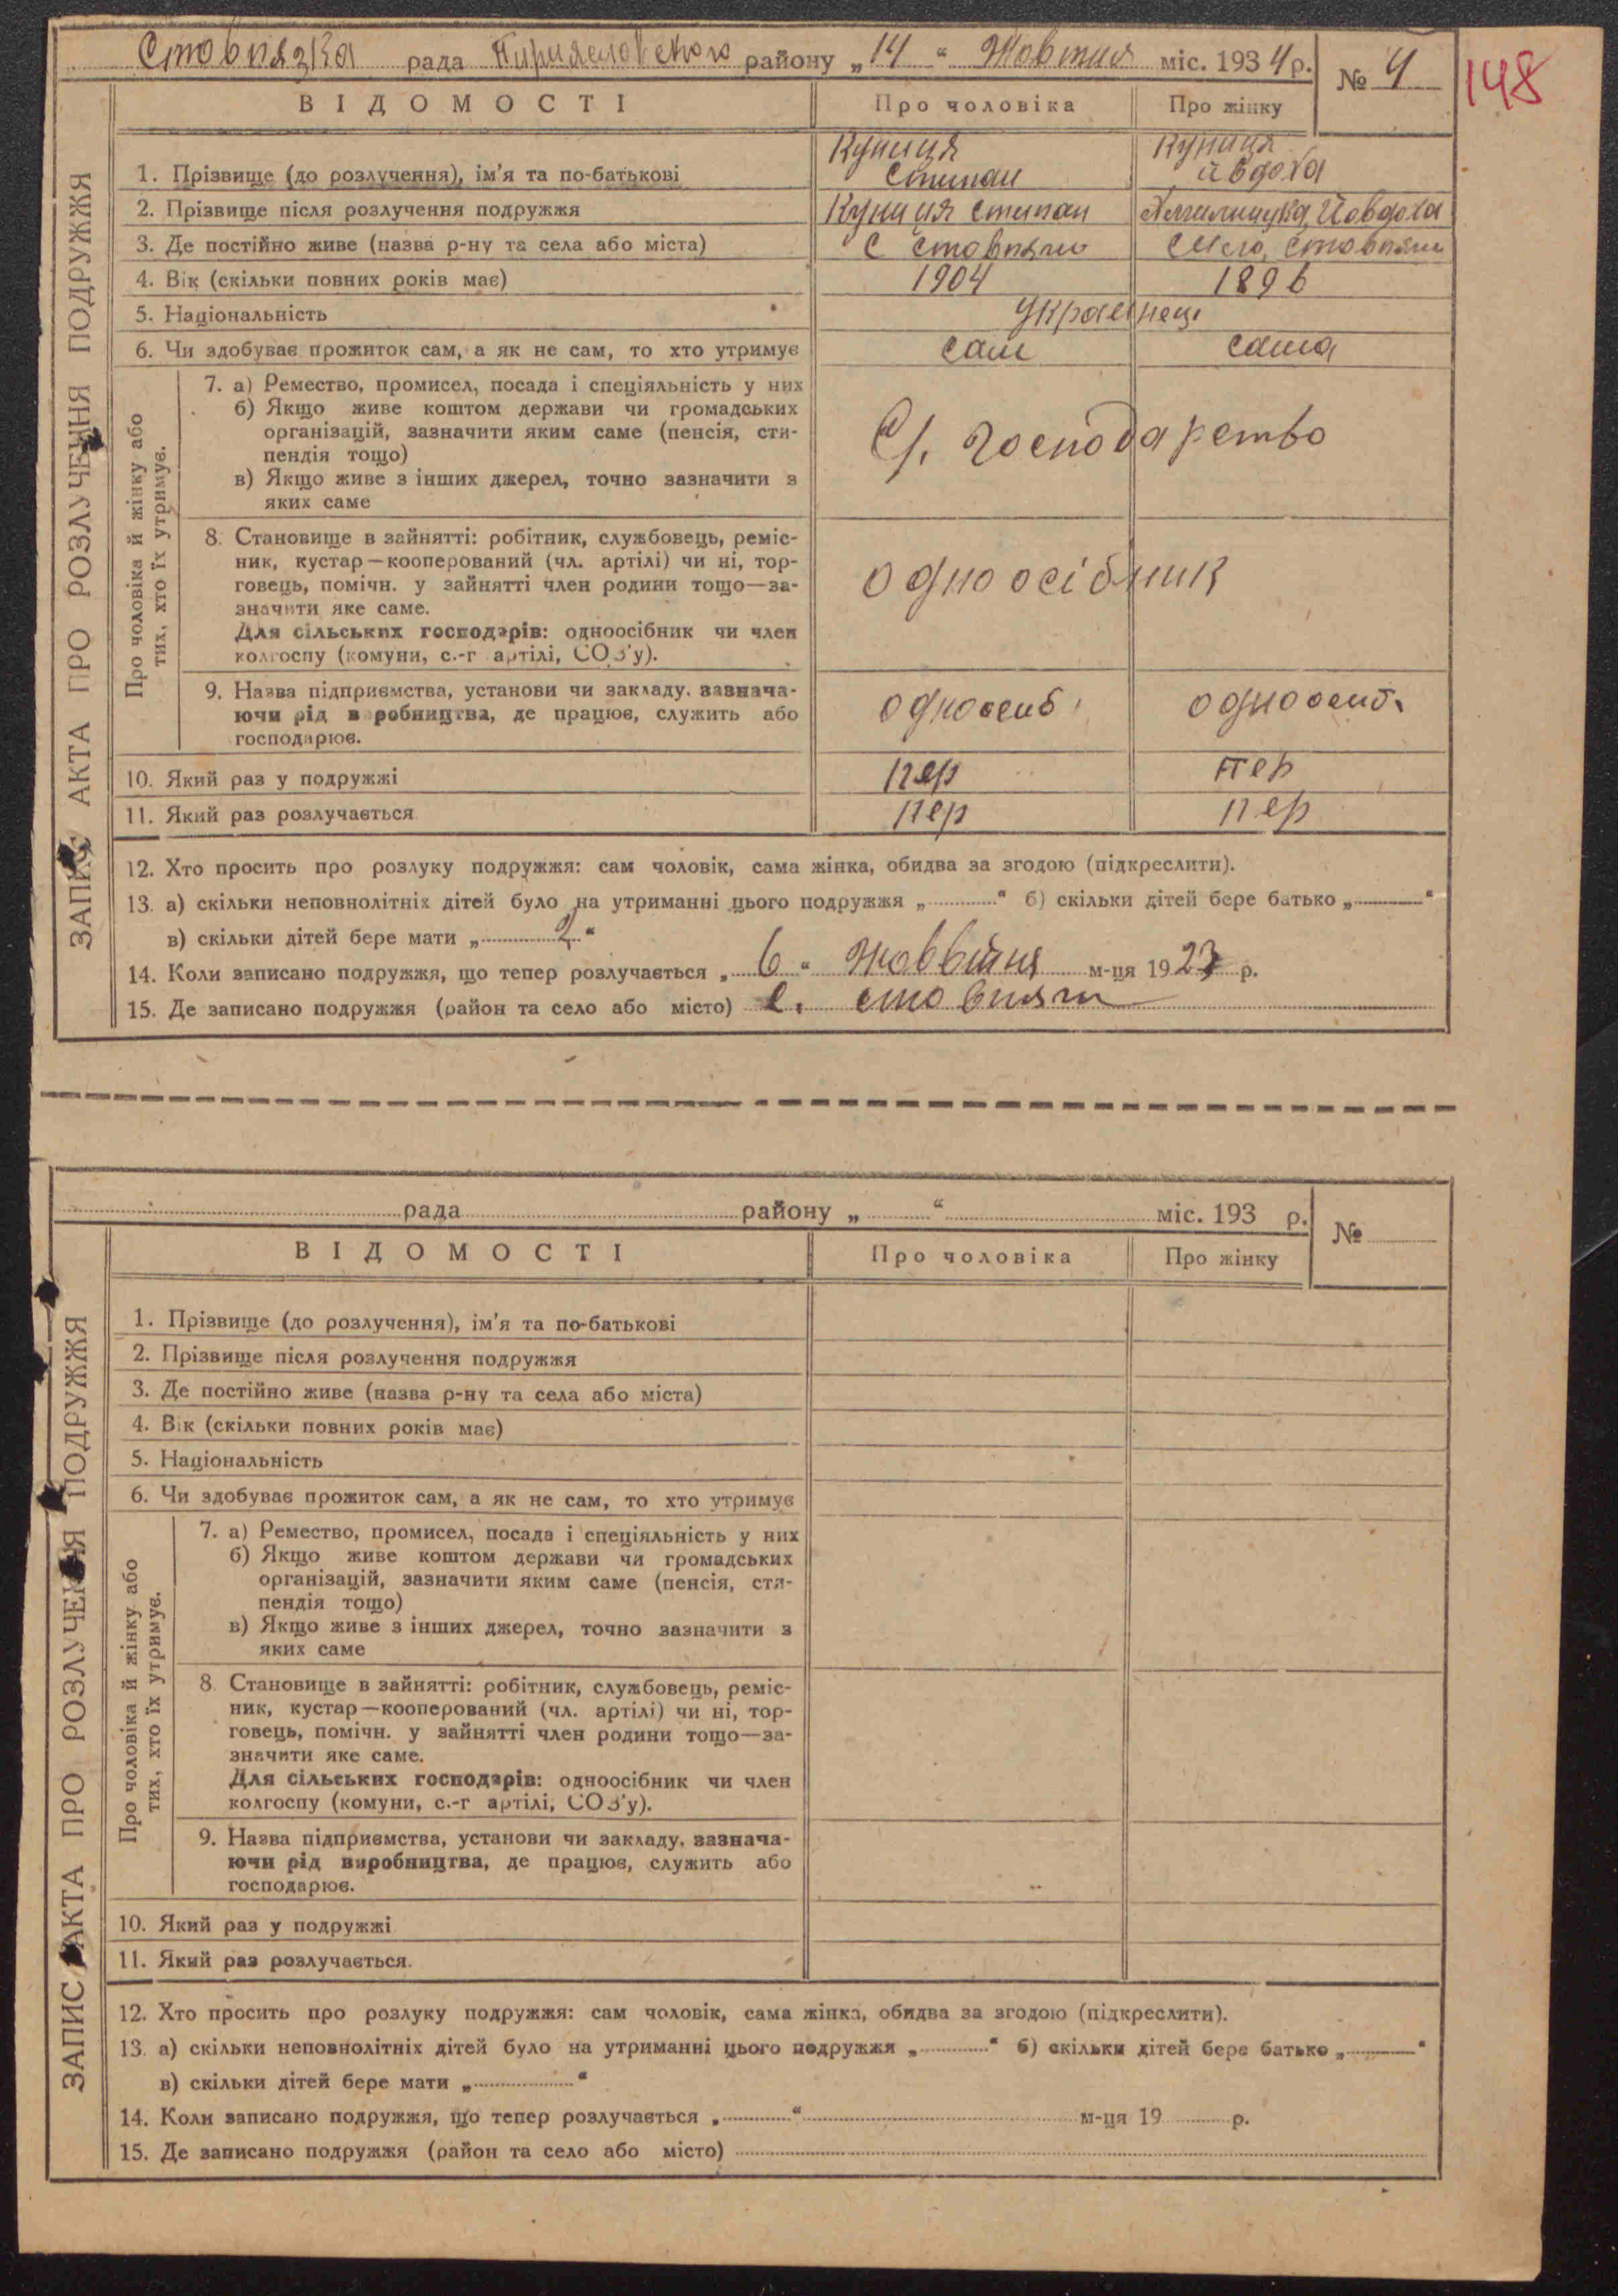 Стовпязка рада Пириясловского району „14“ Жовтня міс. 1934 р. № 4
148
ВІДОМОСТІ Про чоловіка Про жінку
ЗАПИС АКТА ПРО РОЗЛУЧЕННЯ ПОДРУЖЖЯ
Куниця Куниця
1. Прізвище (до розлучення), ім'я та по-батькові Стипан Йвдоха
2. Прізвище після розлучення подружжя Куниця Стипан Йовдоха
3. Де постійно живе (назва р-ну та села або міста) С Стовпяги Село, Стовпяги
4. Вік (скільки повних років має) 1904 1896
5. Національність Украєнець
6. Чи здобуває прожиток сам, а як не сам, то хто утримує сам сама
Про чоловіка й жінку або тих, хто їх утримує.
7. а) Ремество, промисел, посада і спеціяльність у них
б) Якщо живе коштом держави чи громадських
організацій, зазначити яким саме (пенсія, сти-
пендія тощо)
С/. господарство
в) Якщо живе з інших джерел, точно зазначити з
яких саме
8. Становище в зайнятті: робітник, службовець, реміс-
ник, кустар—кооперований (чл. артілі) чи ні, тор-
говець, помічн. у зайнятті член родини тощо—за-
значити яке саме.
одноосібник
Для сільських господарів: одноосібник чи член
колгоспу (комуни, с.-г артілі, СОЗ'у).
9. Назва підприємства, установи чи закладу, зазнача-
ючи рід виробництва, де працює, служить або
господарює.
одноосиб. одноосиб.
10. Який раз у подружжі пер пер
11. Який раз розлучається пер пер
12. Хто просить про розлуку подружжя: сам чоловік, сама жінка, обидва за згодою (підкреслити).
13. а) скільки неповнолітніх дітей було на утриманні цього подружжя „ “ б) скільки дітей бере батько „ “
в) скільки дітей бере мати „ 2 “
14. Коли записано подружжя, що тепер розлучається „ 6 “ Жоввітня м-ця 1923 р.
15. Де записано подружжя (район та село або місто) с. стовпяги
рада району „ “ міс. 193 р. №
ВІДОМОСТІ Про чоловіка Про жінку
ЗАПИС АКТА ПРО РОЗЛУЧЕННЯ ПОДРУЖЖЯ
1. Прізвище (до розлучення), ім'я та по-батькові
2. Прізвище після розлучення подружжя
3. Де постійно живе (назва р-ну та села або міста)
4. Вік (скільки повних років має)
5. Національність
6. Чи здобуває прожиток сам, а як не сам, то хто утримує
Про чоловіка й жінку або тих, хто їх утримує.
7. а) Ремество, промисел, посада і спеціяльність у них
б) Якщо живе коштом держави чи громадських
організацій, зазначити яким саме (пенсія, стя-
пендія тощо)
в) Якщо живе з інших джерел, точно зазначити з
яких саме
8. Становище в зайнятті: робітник, службовець, реміс-
ник, кустар—кооперований (чл. артілі) чи ні, тор-
говець, помічн. у зайнятті член родини тощо—за-
значити яке саме.
Для сільських господарів: одноосібник чи член
колгоспу (комуни, с.-г артілі, СОЗ'у).
9. Назва підприємства, установи чи закладу, зазнача-
ючи рід виробництва, де працює, служить або
господарює.
10. Який раз у подружжі
11. Який раз розлучається.
12. Хто просить про розлуку подружжя: сам чоловік, сама жінка, обидва за згодою (підкреслити).
13. а) скільки неповнолітніх дітей було на утриманні цього подружжя „ “ б) скільки дітей бере батько „ “
в) скільки дітей бере мати „ “
14. Коли записано подружжя, що тепер розлучається „ “ м-ця 19 р.
15. Де записано подружжя (район та село або місто)